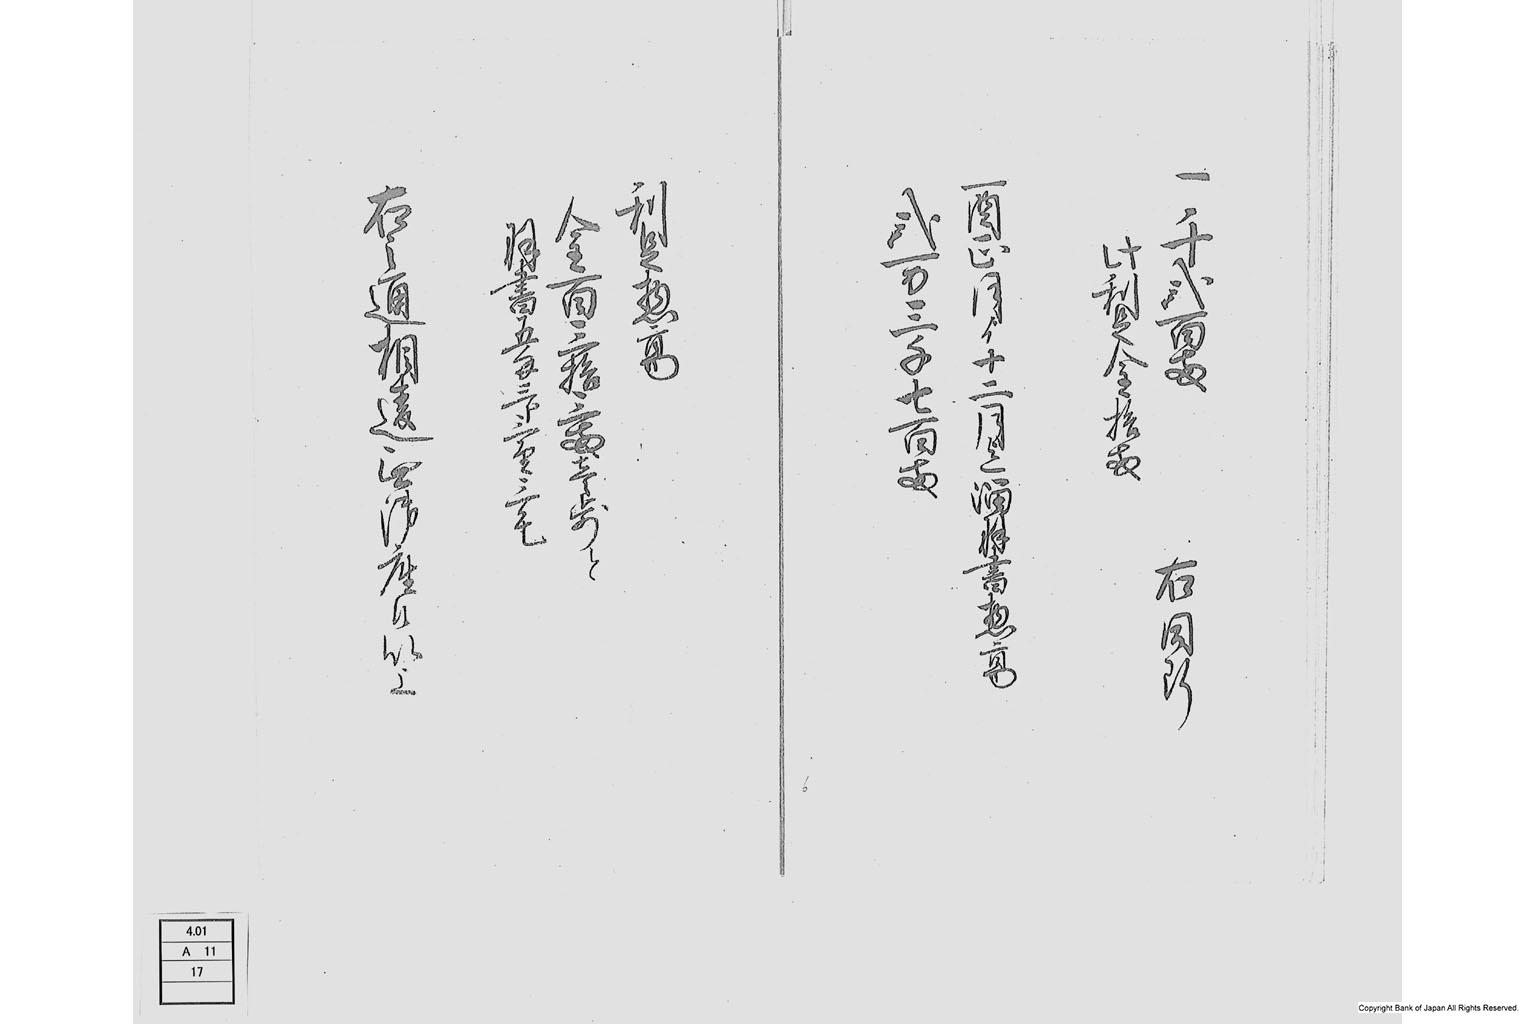 一千弐百両
右同断
此利足金拾両
酉正月ゟ十二月迄涌桝書惣高
弐万三千七百両
利足惣高
金百三拾三両壱歩と
桝書五匁三分三厘三毛
右之通相違無御座候以上
6
4.01
A 11
17
Copyright Bank of Japan All Rights Reserved.